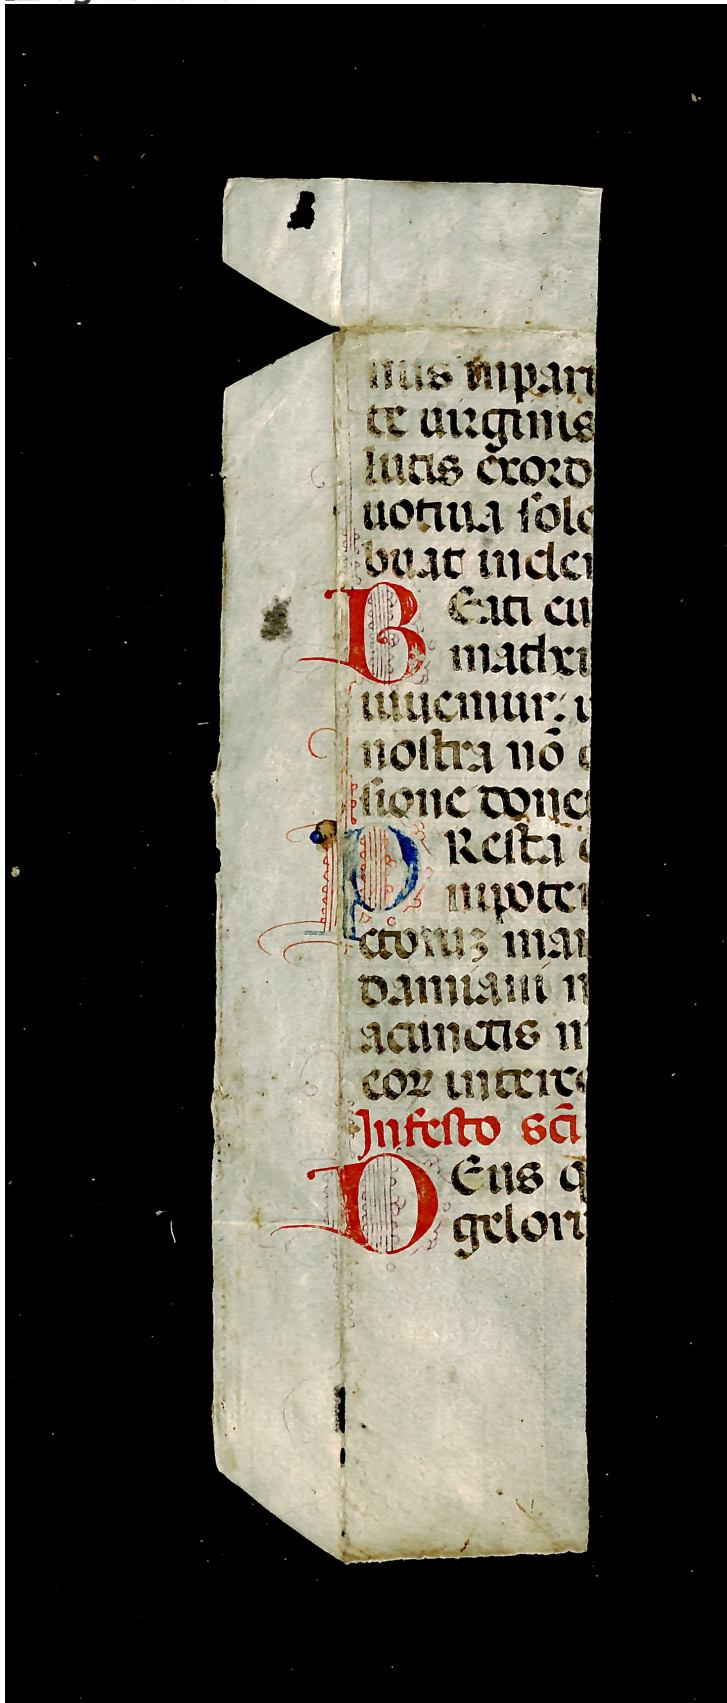 mis inpart
te uirginis
lutis exord
uotiua sole
buat incle
BEati eu
mathei
iuuemur: 
nostra nō
sione done
PResta
nipote
ctoruꝫ mar
damiani n
acunctis m
eoꝝ interce
Infesto sc̄i
DEus q
geloru